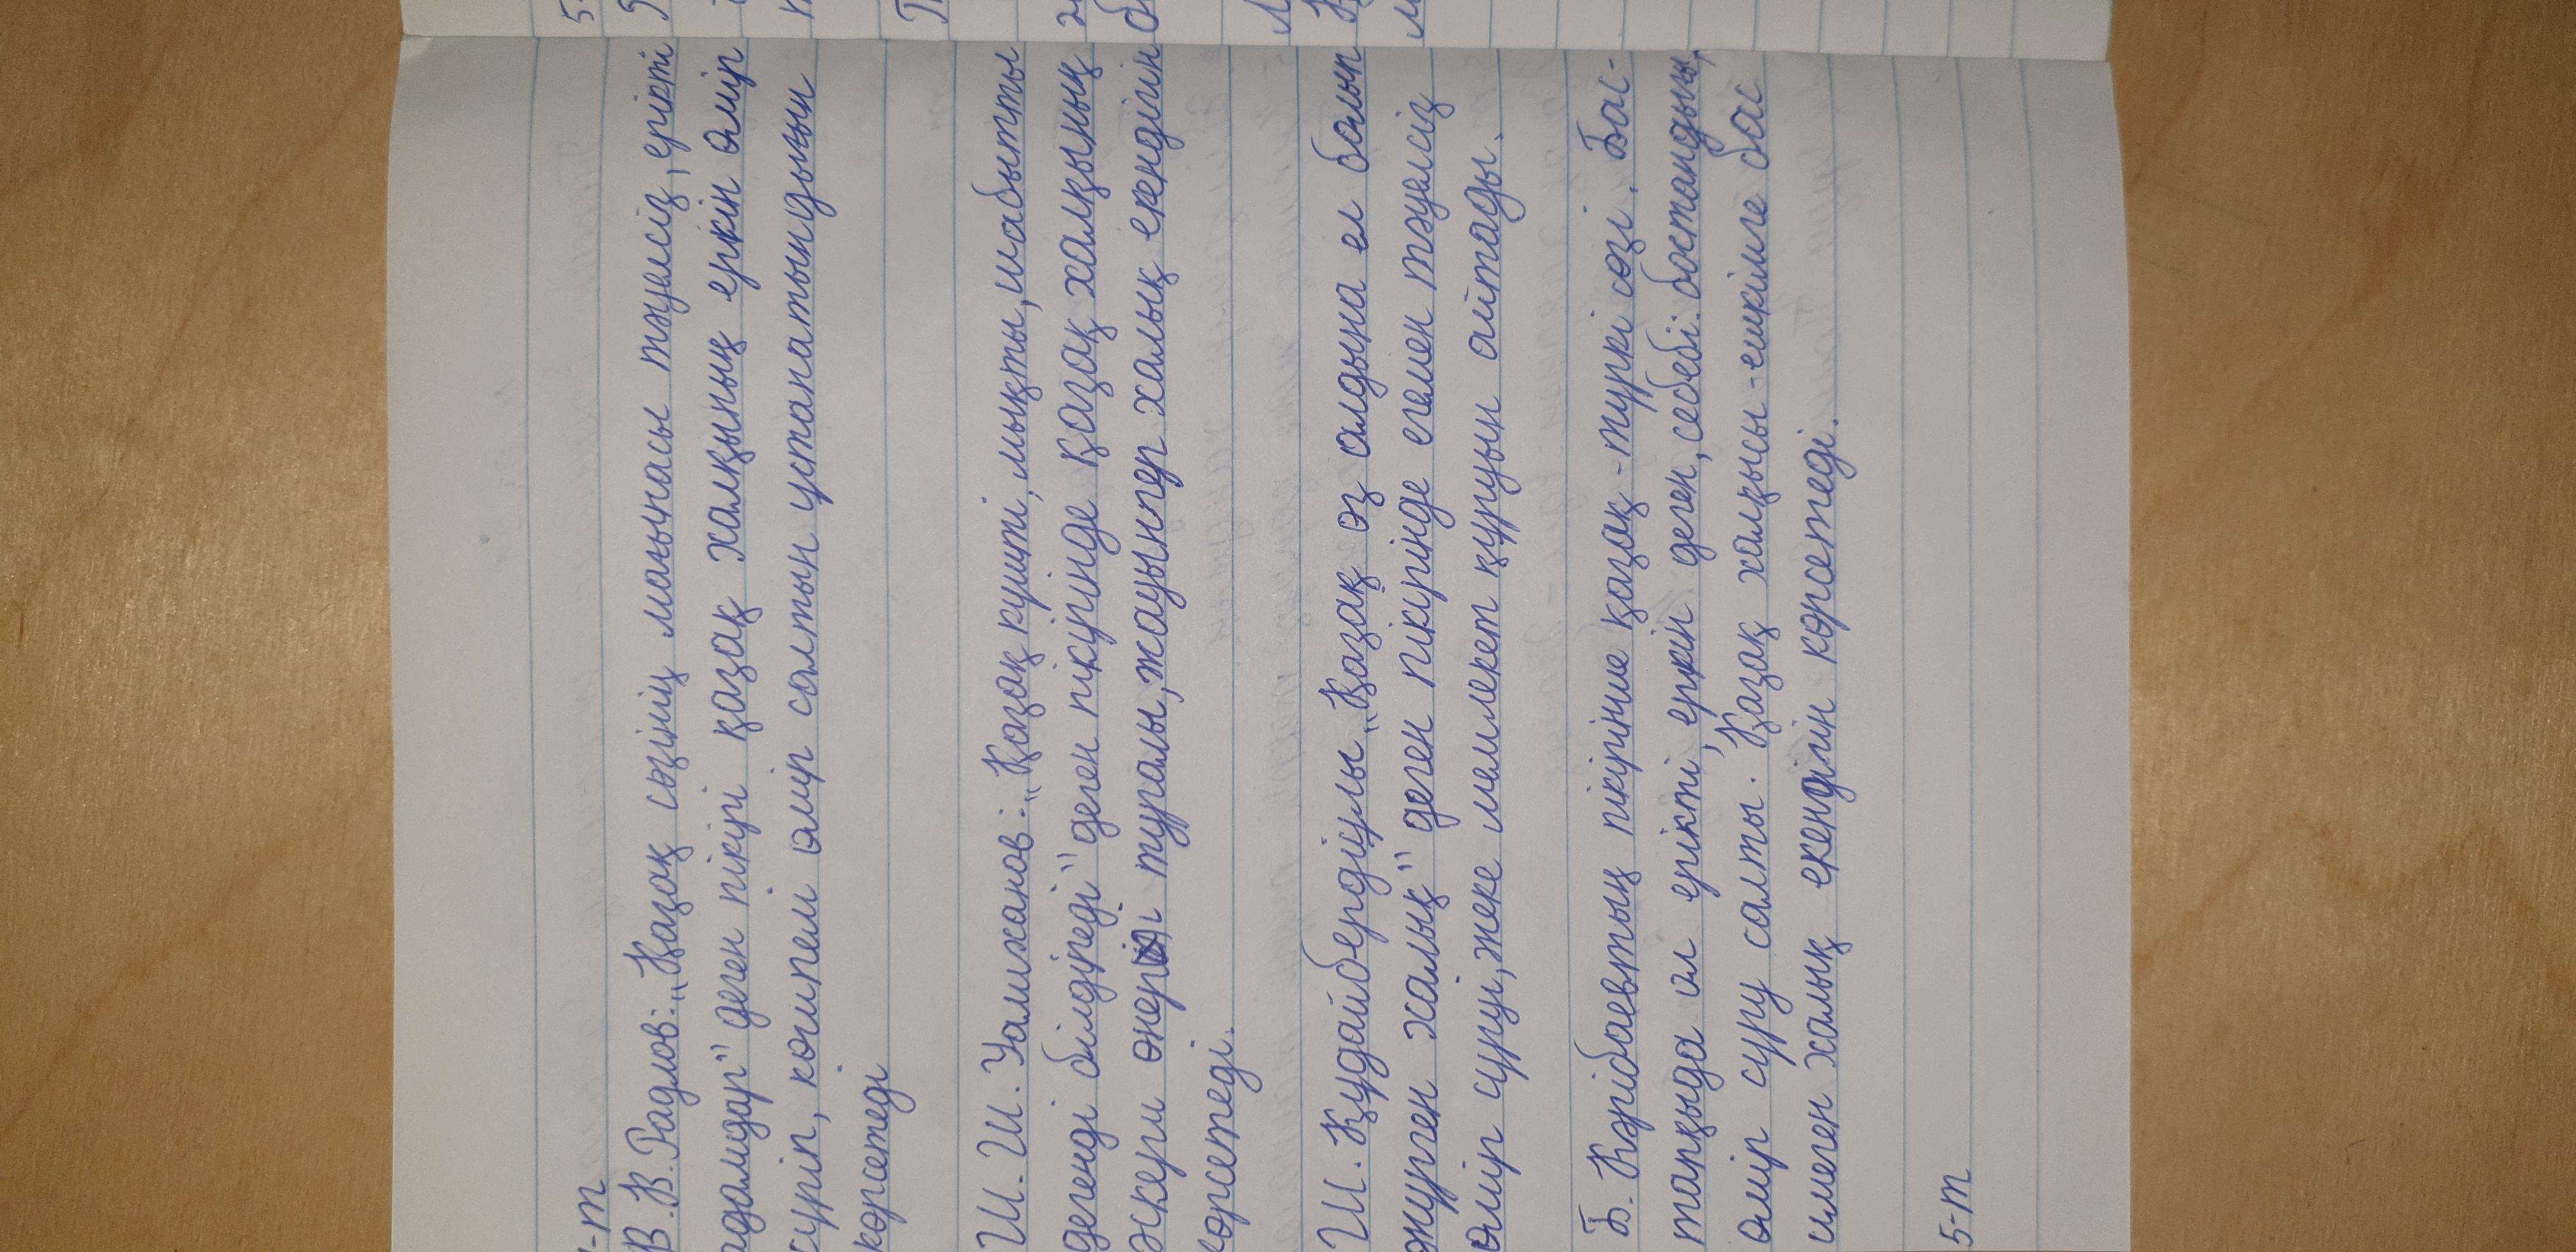 -т
В.В.Радлов: „Қазақ сөзінің мағынасы тәуелсіз, ерікті
адамдар" деген пікірі қазақ халқының еркін өмір
сүріп, көшпелі өмір салтын ұстанатындығын
көрсетеді
Ш.Ш. Уәлиханов: „Қазақ күшті, мықты, шабытты
дегенді білдіреді" деген пікірінде қазақ халқының
әскери өнері туралы, жауынгер халық екендігін
көрсетеді.
Ш. Құдайбердіұлы „Қазақ өз алдына ел болып
жүрген халық" деген пікірінде егемен тәуелсіз
өмір сүруі, жеке мемлекет құруын айтады.
Б. Кәрібаевтың пікірінше қазақ - түркі сөзі. Бас-
тапқыда ол ерікті, еркін деген, себебі: бостандығы,
өмір сүру салты. Қазақ халқысы - ешкімге бас
имеген халық екендігін көрсетеді.
5-т